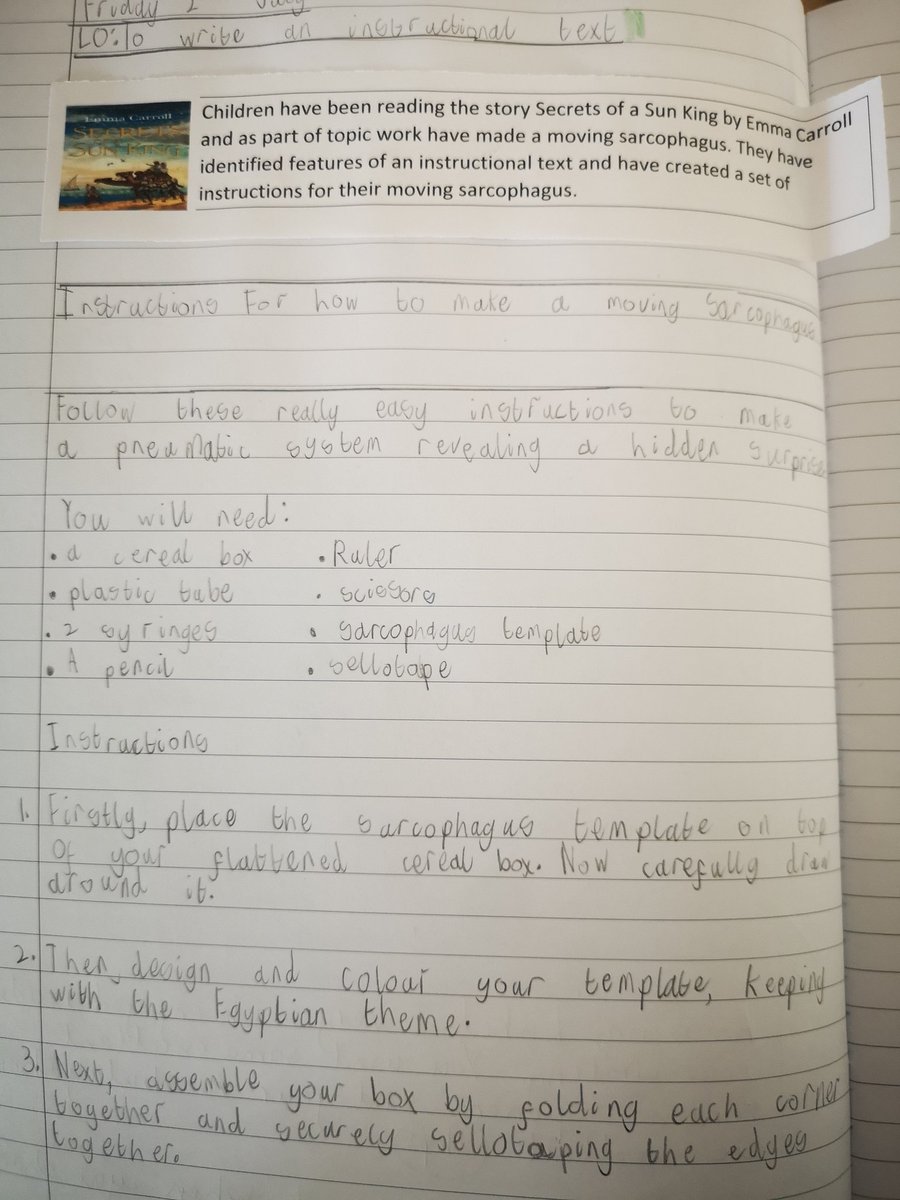 2 July
LO: To write an instructional text
Emma Carroll
SECRETS
SUN KING
Children have been reading the story Secrets of a Sun King by Emma Carroll
and as part of topic work have made a moving sarcophagus. They have
identified features of an instructional text and have created a set of
instructions for their moving sarcophagus.
Instructions For how to make a moving Sarcophagus
Follow these really easy instructions to make
a pneumatic system revealing a hidden surprise
You will need:
• a cereal box
• plastic tube
• 2 syringes
• A pencil
• Ruler
• scissors
• sarcophagus template
• sellotape
Instructions
1. Firstly, place the sarcophagus template on top
of your flattened cereal box. Now carefully draw
around it.
2. Then, design and colour your template, keeping
with the Egyptian theme.
3. Next, assemble your box by folding each corner
together and securely sellotaping the edges
together.